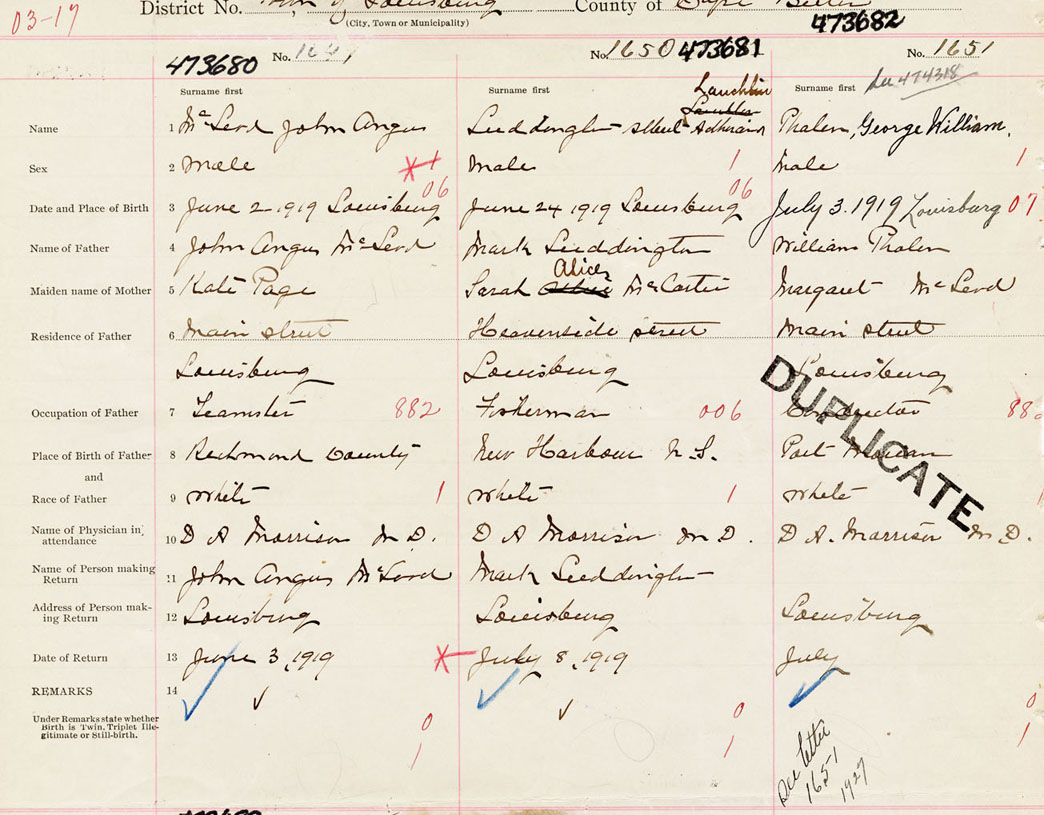 03-17 District No. Town of Louisburg County of Cape Breton
(City, Town or Municipality) 473682
473680 No. No. 1650 473681 No. 1651
See 474318
Surname first Surname first Lauchlin Surname first
Name 1 McLeod John Angus Luddington Albert Phalen, George William.
Sex 2 Male 1 Male 1 Male 1
06 06
Date and Place of Birth 3 June 2-1919 Louisburg June 24 1919 Louisburg July 3. 1919 Louisburg 07
Name of Father 4 John Angus McLeod Mark Luddington William Phalen
Alice
Maiden name of Mother 5 Kate Page Sarah McCartie Margaret McLeod
Residence of Father 6 Main street Heavenside street Main street
Louisburg Louisburg Louisburg
DUPLICATE
Occupation of Father 7 Teamster 882 Fisherman 006 Conductor 88
Place of Birth of Father 8 Richmond County New Harbour N.S. Port Morien
and
Race of Father 9 White 1 White 1 White 1
Name of Physician in attendance 10 D A Morrison M.D. D A Morrison M D. D A. Morrison M.D.
Name of Person making Return 11 John Angus McLeod Mark Luddington
Address of Person making Return 12 Louisburg Louisburg Louisburg
Date of Return 13 June 3, 1919 July 8, 1919 July
REMARKS 14
Under Remarks state whether Birth is Twin, Triplet Illegitimate or Still-birth. 0 0 0
1 1 1
See letter
1651
1927